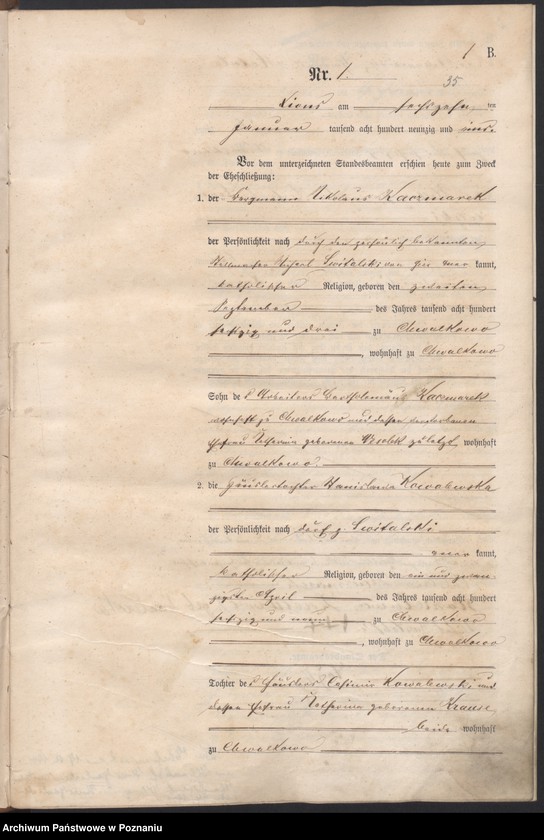 1 B.
Nr. 1
35
Xions am sechszehn ten
Januar tausend acht hundert neunzig und eins.
Vor dem unterzeichneten Standesbeamten erschien heute zum Zweck
der Eheschließung:
1. der Bergmann Nikolaus Kaczmarek
der Persönlichkeit nach durch den persönlich bekannten
Michael Switalski von hier aner kannt,
katholischer Religion, geboren den zweiten
September des Jahres tausend acht hundert
sechzig und drei zu Chwalkowo
, wohnhaft zu Chwalkowo
Sohn des Arbeiters Bartholomäus Kaczmarek
wohnhaft zu Chwalkowo und dessen verstorbenen
Ehefrau geborenen zuletzt wohnhaft
zu Chwalkowo.
2. die Häuslertochter Stanislawa Kowalewska
der Persönlichkeit nach durch p. Switalski
aner kannt,
katholischer Religion, geboren den ein und zwan-
zigsten April des Jahres tausend acht hundert
sechzig und neun zu Chwalkowo
, wohnhaft zu Chwalkowo
Tochter des Häuslers Casimir Kowalewski und
dessen Ehefrau Katharina geborenen Krause,
beide wohnhaft
zu Chwalkowo
Archiwum Państwowe w Poznaniu